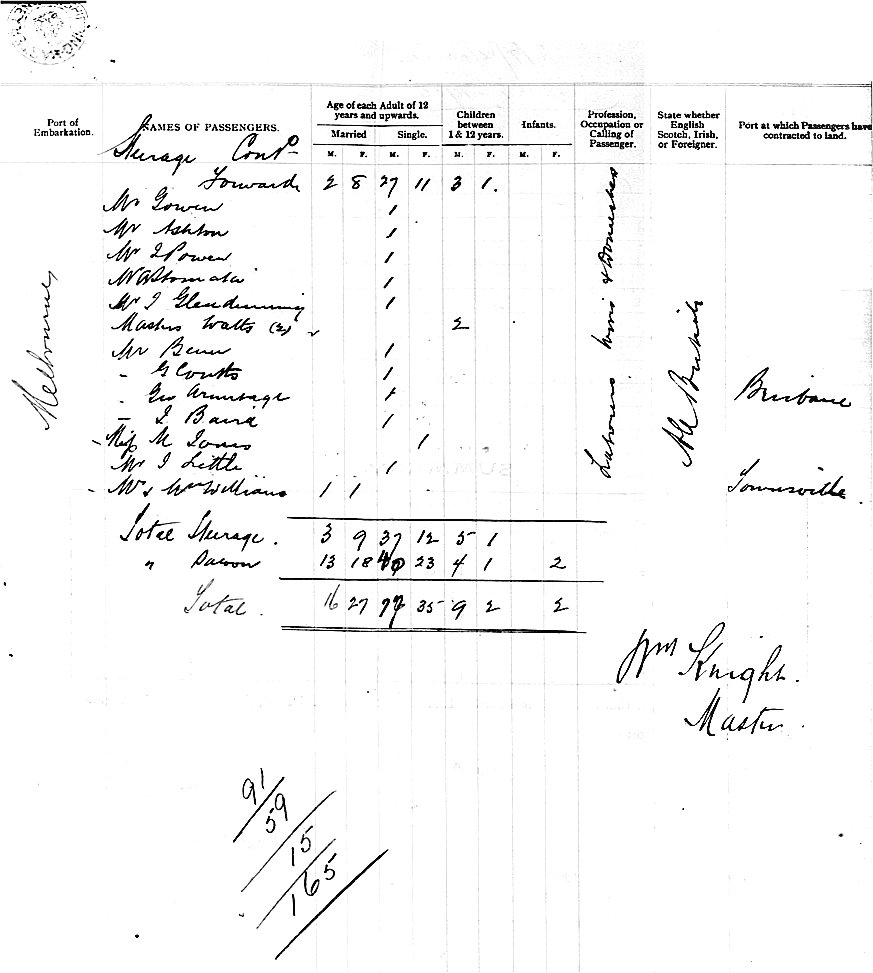 Port of Embarkation.
NAMES OF PASSENGERS.
Age of each Adult of 12 years and upwards.
Married Single.
M. F. M. F.
Children between 1 & 12 years.
M. F.
Infants.
M. F.
Profession, Occupation or Calling of Passenger.
State whether English Scotch, Irish, or Foreigner.
Port at which Passengers have contracted to land.
Steerage Contd
Forwards 2 8 27 11 3 1.
Mr Gowen 1
Mr Ashton 1
Mr J Power 1
1
Mr J Glendinning 1
Masters Watts (2) 2
Mr 1
" G Coutts 1
" Geo Armitage 1
" J Baird 1
Miss M Jones 1
Mr J Little 1
Mr & Mrs Williams 1 1
Melbourne
Labourers & Domestics
All British
Brisbane
Townsville
Total Steerage. 3 9 37 12 5 1
" Saloon 13 18 40 23 4 1 2
Total. 16 27 77 35 9 2 2
Wm Knight.
Master.
91
59
15
165